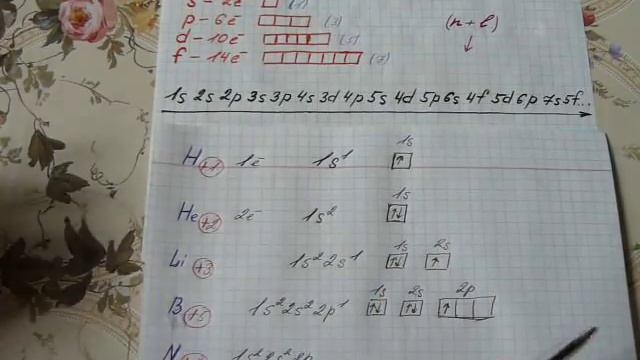 s – 2ē (1)
p – 6ē (3)
d – 10ē (5)
f – 14ē (7)
(n + l)
1s 2s 2p 3s 3p 4s 3d 4p 5s 4d 5p 6s 4f 5d 6p 7s 5f...
H +1 1ē 1s¹ 1s ↑
He +2 2ē 1s² 1s ↑↓
Li +3 1s²2s¹ 1s ↑↓ 2s ↑
B +5 1s²2s²2p¹ 1s ↑↓ 2s ↑↓ 2p ↑
N 1s²2s²2p